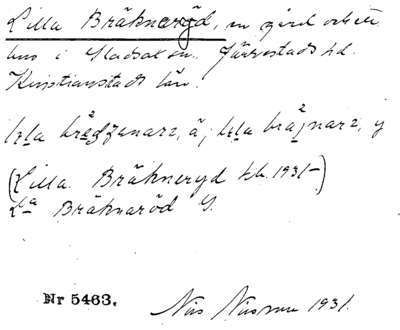 Lilla Bräkneryd, en gård och ett
hus i Gladsax sn. Järrestads hd.
Kristianstads län.
lɩla brɛ̀dʒənarz, ä; lɩla brä̀jnarz, y
(Lilla Bräkneryd kb. 1931–)
L:a Bräknaröd G.
Nr 5463.
Nils Nilsson 1931.